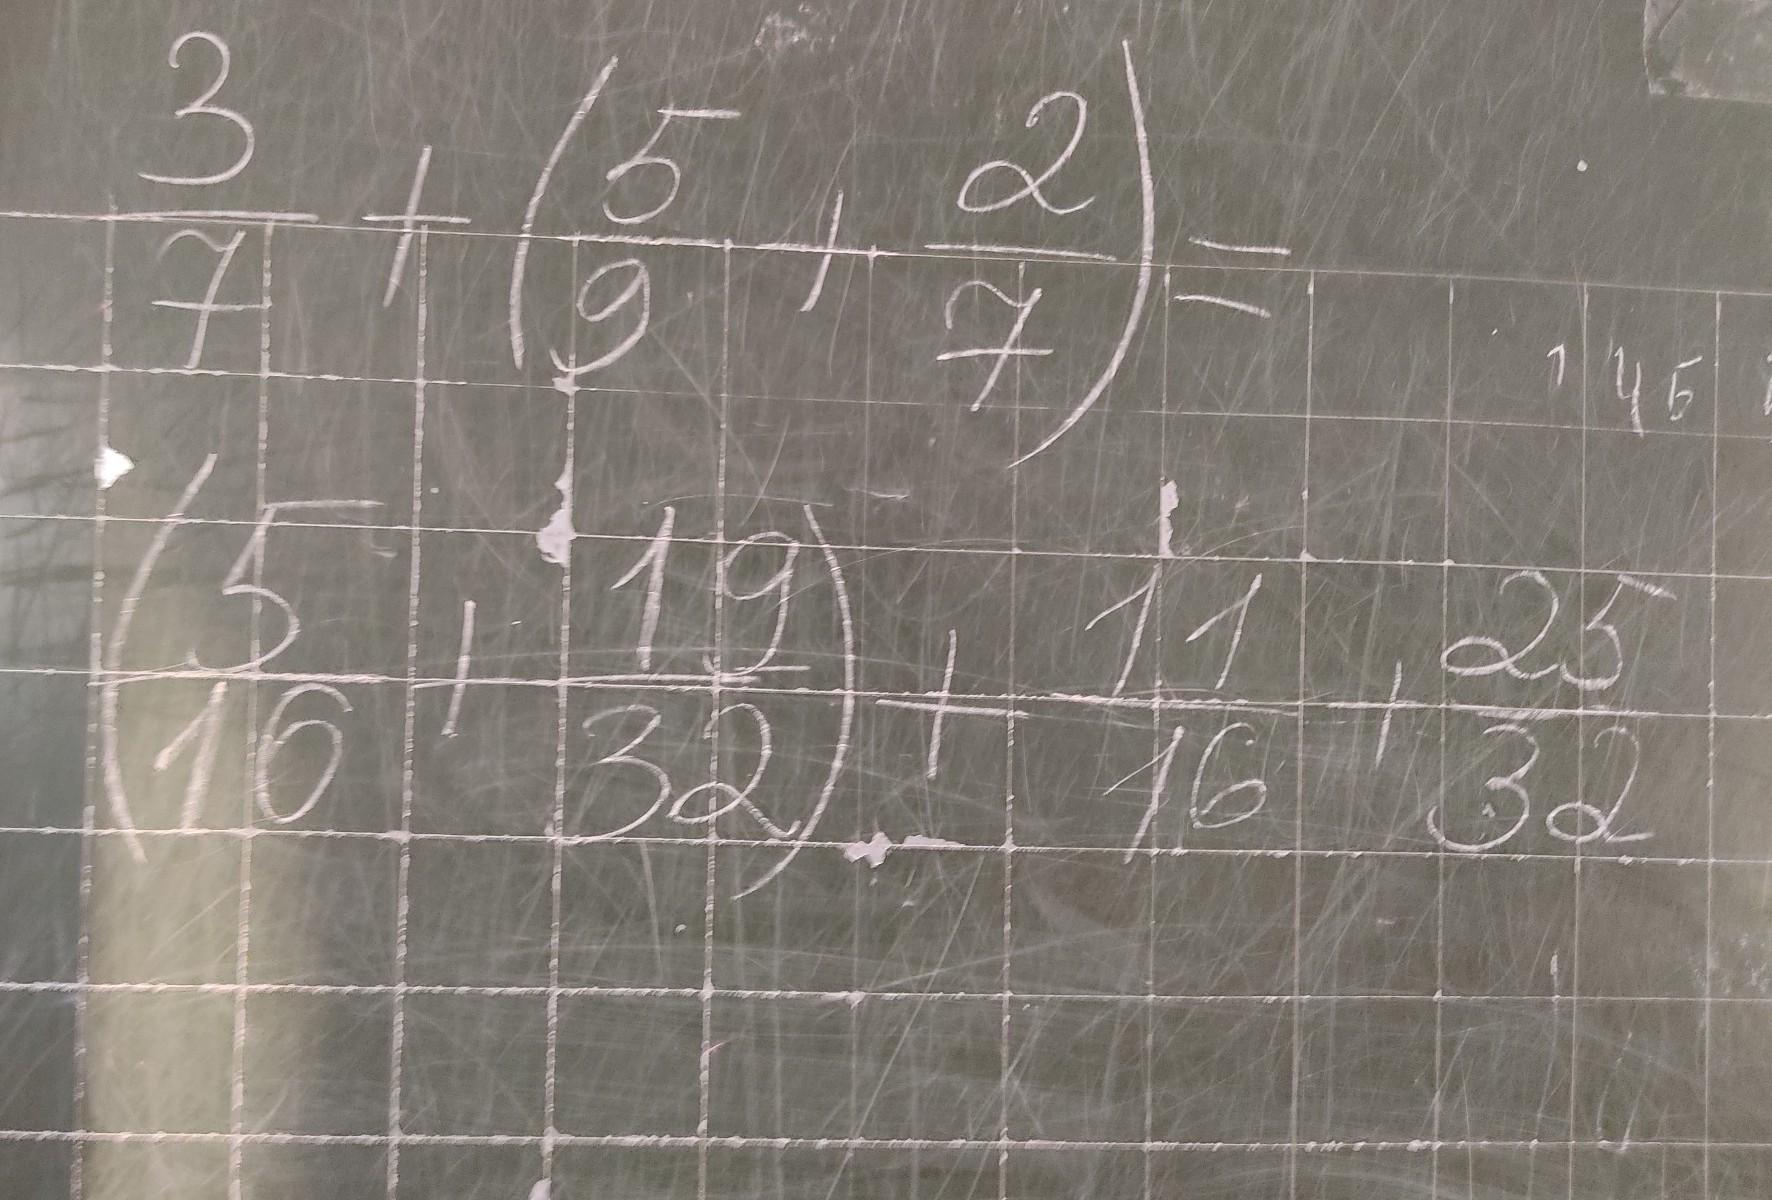 3/7 + (5/9 + 2/7) =
1 4 5
(5/16 + 19/32) + 11/16 + 25/32